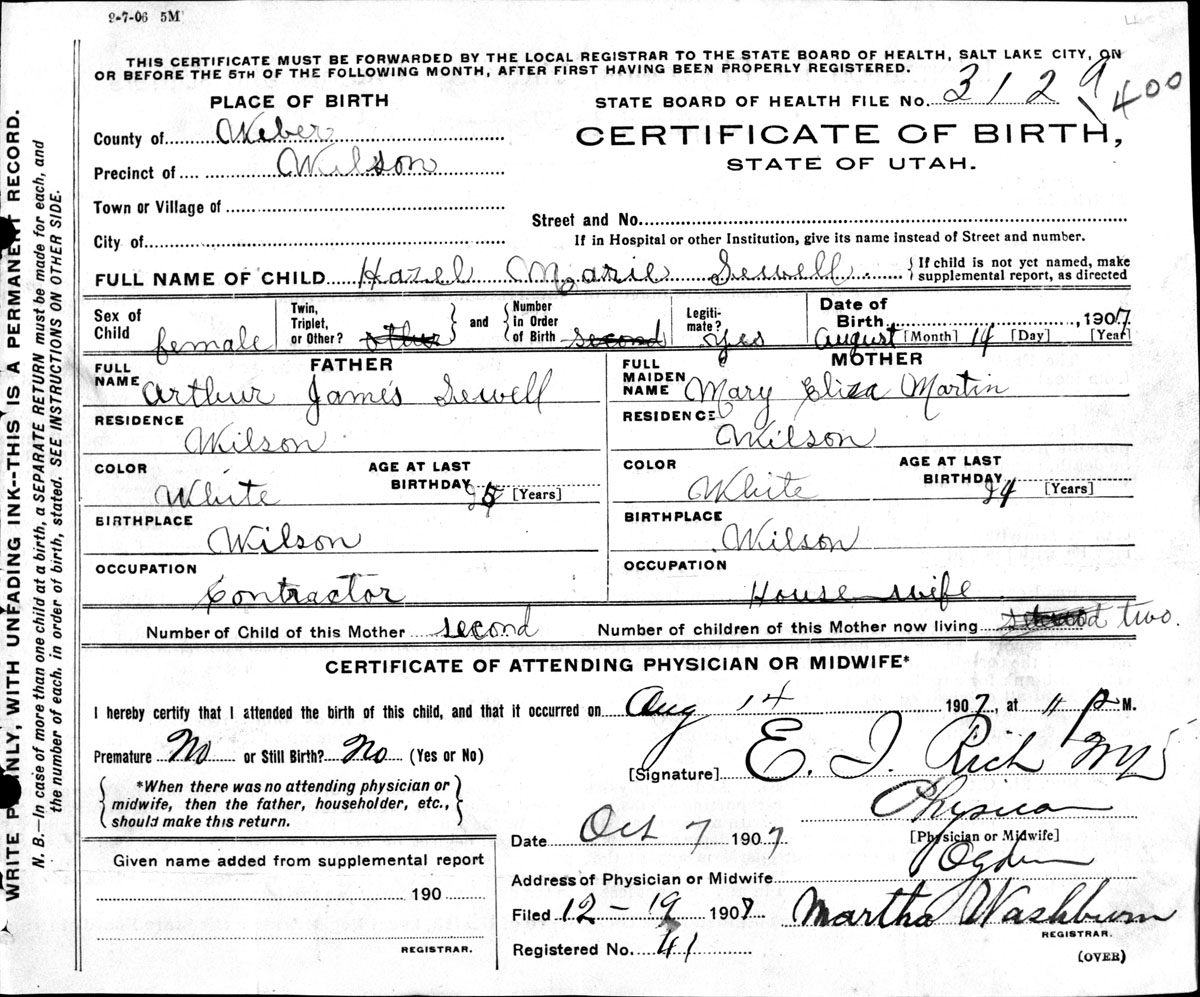 2-7-06 5M
THIS CERTIFICATE MUST BE FORWARDED BY THE LOCAL REGISTRAR TO THE STATE BOARD OF HEALTH, SALT LAKE CITY, ON
OR BEFORE THE 5TH OF THE FOLLOWING MONTH, AFTER FIRST HAVING BEEN PROPERLY REGISTERED.
PLACE OF BIRTH
STATE BOARD OF HEALTH FILE No. 3129 400
County of Weber
CERTIFICATE OF BIRTH,
STATE OF UTAH.
Precinct of Wilson
Town or Village of
Street and No.
City of
If in Hospital or other Institution, give its name instead of Street and number.
FULL NAME OF CHILD Hazel Marie Sewell { If child is not yet named, make supplemental report, as directed
Sex of Child female
Twin, Triplet, or Other? other } and { Number in Order of Birth second
Legitimate? Yes
Date of Birth August [Month] 14 [Day], 1907 [Year]
FATHER
FULL NAME Arthur James Sewell
RESIDENCE
Wilson
COLOR White AGE AT LAST BIRTHDAY 25 [Years]
BIRTHPLACE
Wilson
OCCUPATION
Contractor
MOTHER
FULL MAIDEN NAME Mary Eliza Martin
RESIDENCE
Wilson
COLOR White AGE AT LAST BIRTHDAY 24 [Years]
BIRTHPLACE
Wilson
OCCUPATION
House wife
Number of Child of this Mother second Number of children of this Mother now living two.
CERTIFICATE OF ATTENDING PHYSICIAN OR MIDWIFE*
I hereby certify that I attended the birth of this child, and that it occurred on Aug 14 1907, at 11 P M.
Premature No or Still Birth? No (Yes or No)
[Signature] E. I. Rich MD
{ *When there was no attending physician or
midwife, then the father, householder, etc.,
should make this return. }
Physician
[Physician or Midwife]
Date Oct 7 1907
Address of Physician or Midwife Ogden
Given name added from supplemental report
190
REGISTRAR.
Filed 12-19 1907 Martha Washburn
REGISTRAR.
Registered No. 41
(OVER)
WRITE PLAINLY, WITH UNFADING INK--THIS IS A PERMANENT RECORD.
N. B.—In case of more than one child at a birth, a SEPARATE RETURN must be made for each, and
the number of each, in order of birth, stated. SEE INSTRUCTIONS ON OTHER SIDE.